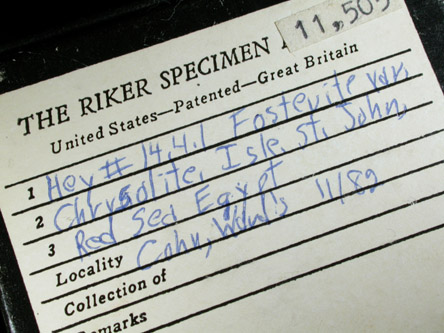 11,505
THE RIKER SPECIMEN
United States—Patented—Great Britain
1 Hey # 14.4.1 Fosterite var.
2 Chrysolite, Isle St. John,
3 Red Sea Egypt
Locality Cohn, Ward's 11/82
Collection of
Remarks